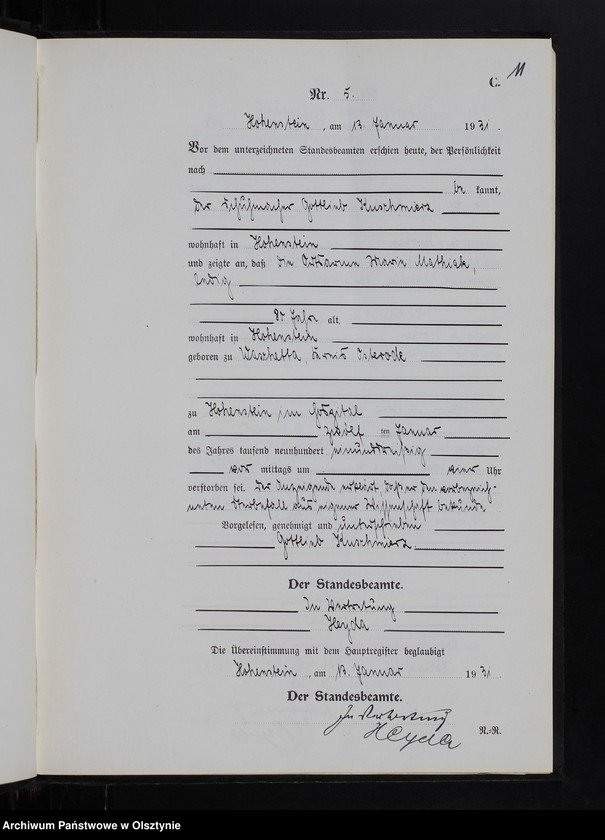 C. 11
Nr. 5.
Hohenstein, am 13. Januar 1931.
Vor dem unterzeichneten Standesbeamten erschien heute, der Persönlichkeit
nach
be kannt,
der Schuhmacher Gottlieb Kuschmierz
wohnhaft in Hohenstein
und zeigte an, daß die Ortsarme Marie Mathiak,
ledig
80 Jahre alt,
wohnhaft in Hohenstein
geboren zu Waschetta, Kreis Osterode
zu Hohenstein im Hospital
am zwölf ten Januar
des Jahres tausend neunhundert einunddreißig
vor mittags um Uhr
verstorben sei. Der Anzeigende erklärt, daß er den vorbezeich-
neten Sterbefall aus eigener Wissenschaft bekunde.
Vorgelesen, genehmigt und unterschrieben
Gottlieb Kuschmierz.
Der Standesbeamte.
In Vertretung
Heyda
Die Übereinstimmung mit dem Hauptregister beglaubigt
Hohenstein, am 13. Januar 1931
Der Standesbeamte.
In Vertretung
Heyda
R.-R.
Archiwum Państwowe w Olsztynie